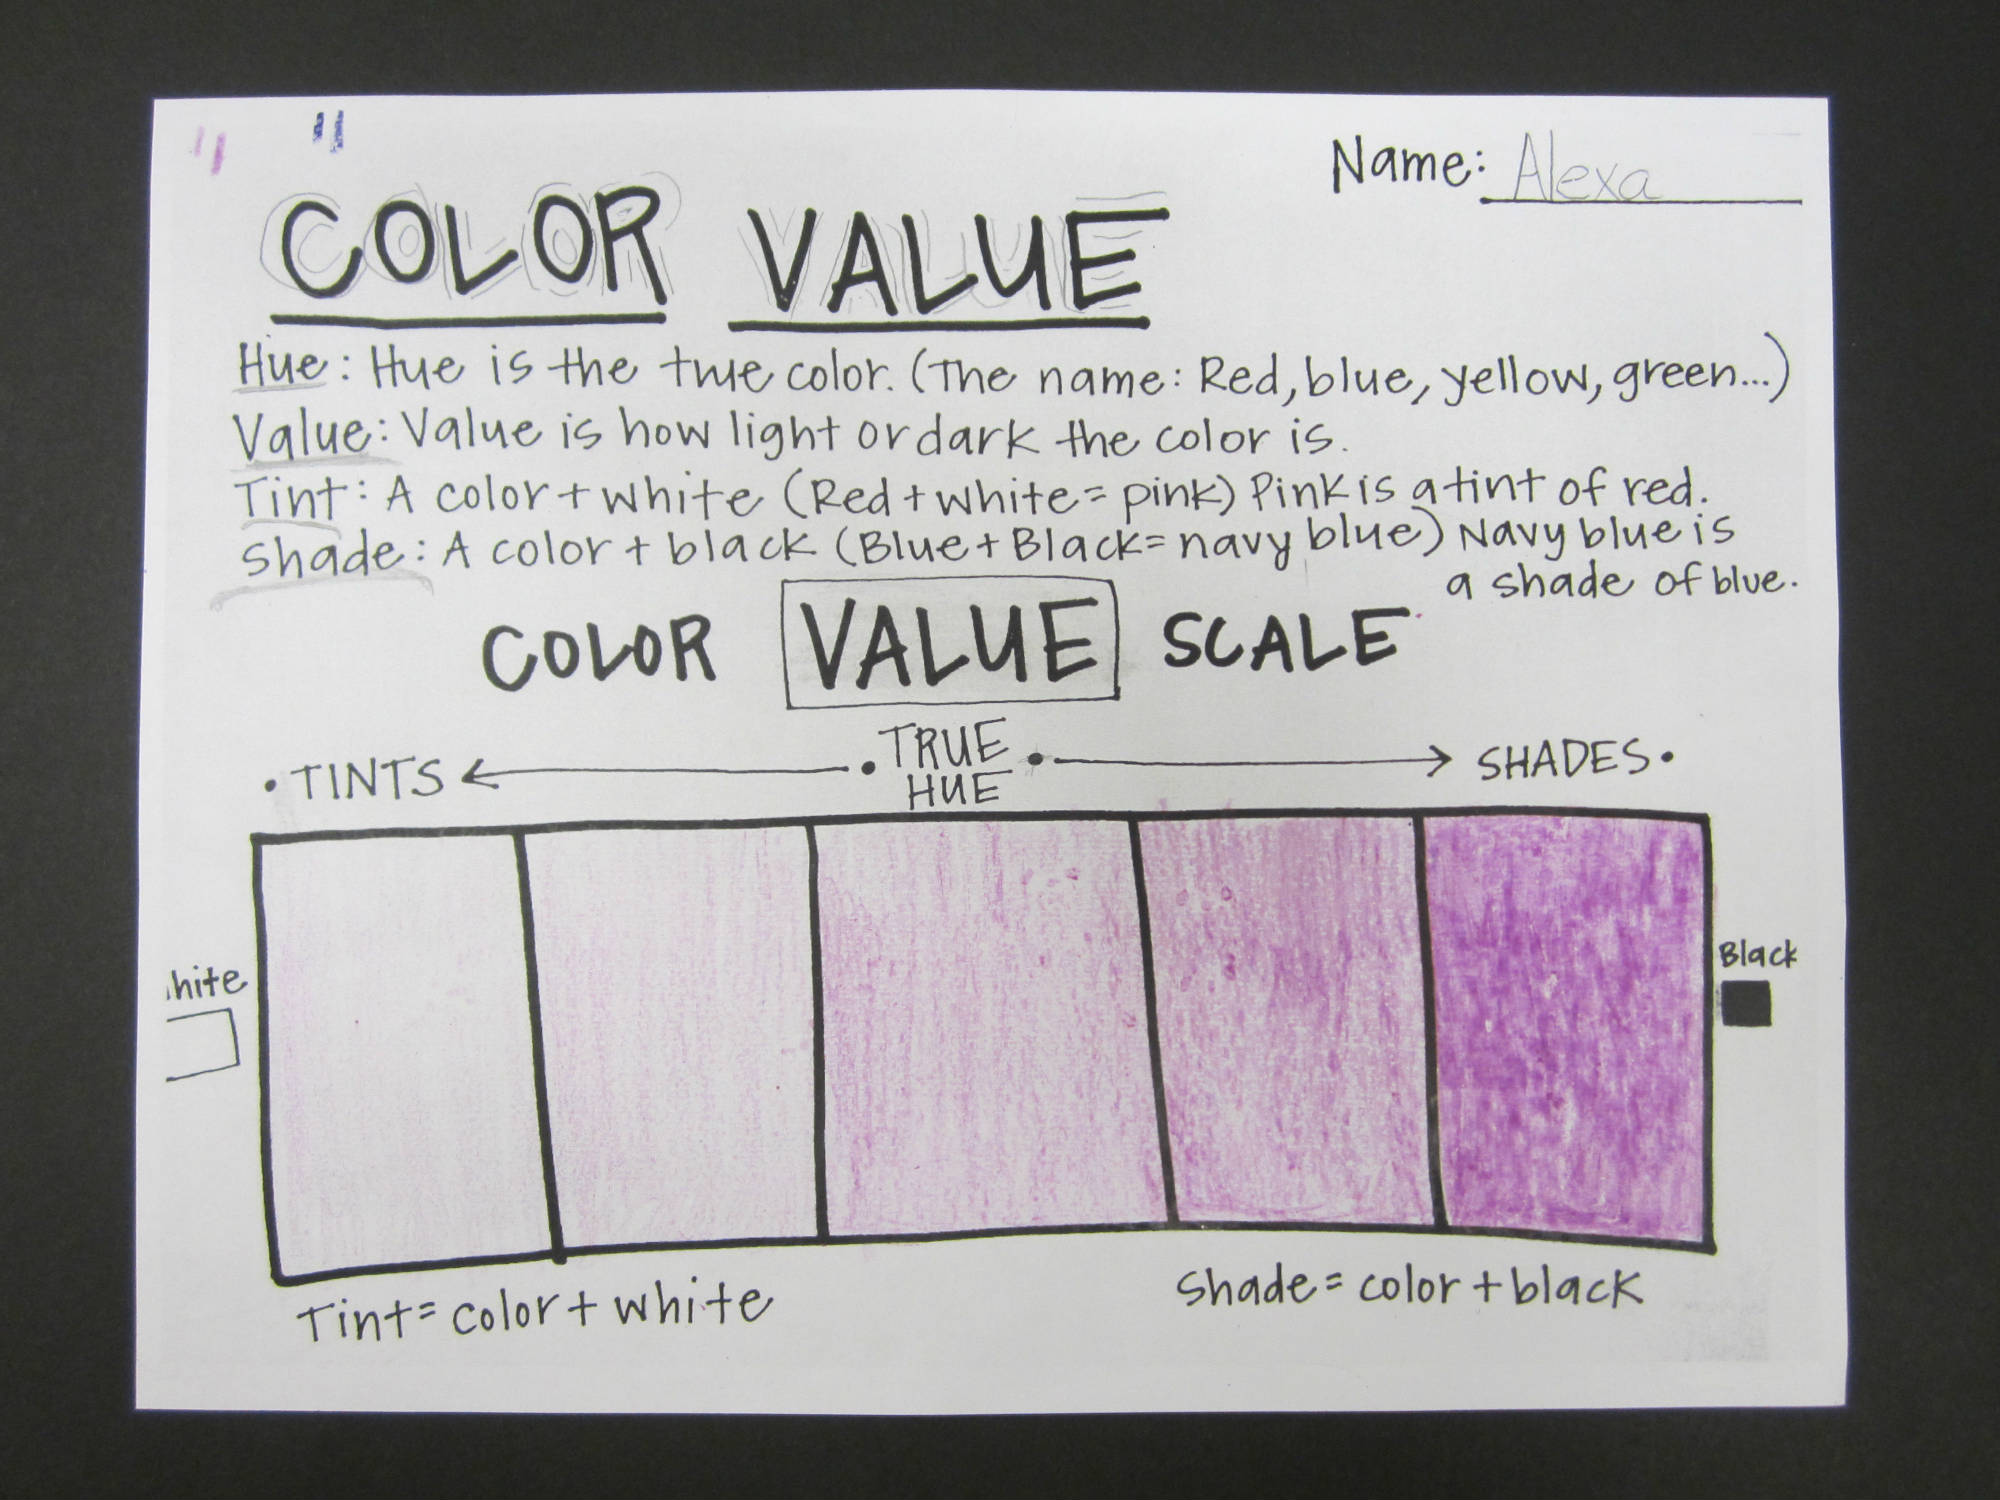 Name: Alexa
COLOR VALUE
Hue: Hue is the true color. (The name: Red, blue, yellow, green...)
Value: Value is how light or dark the color is.
Tint: A color + white (Red + white = pink) Pink is a tint of red.
Shade: A color + black (Blue + Black = navy blue) Navy blue is
a shade of blue.
COLOR VALUE SCALE
• TINTS ← • TRUE HUE • → SHADES •
hite
Black
Tint = color + white
Shade = color + black